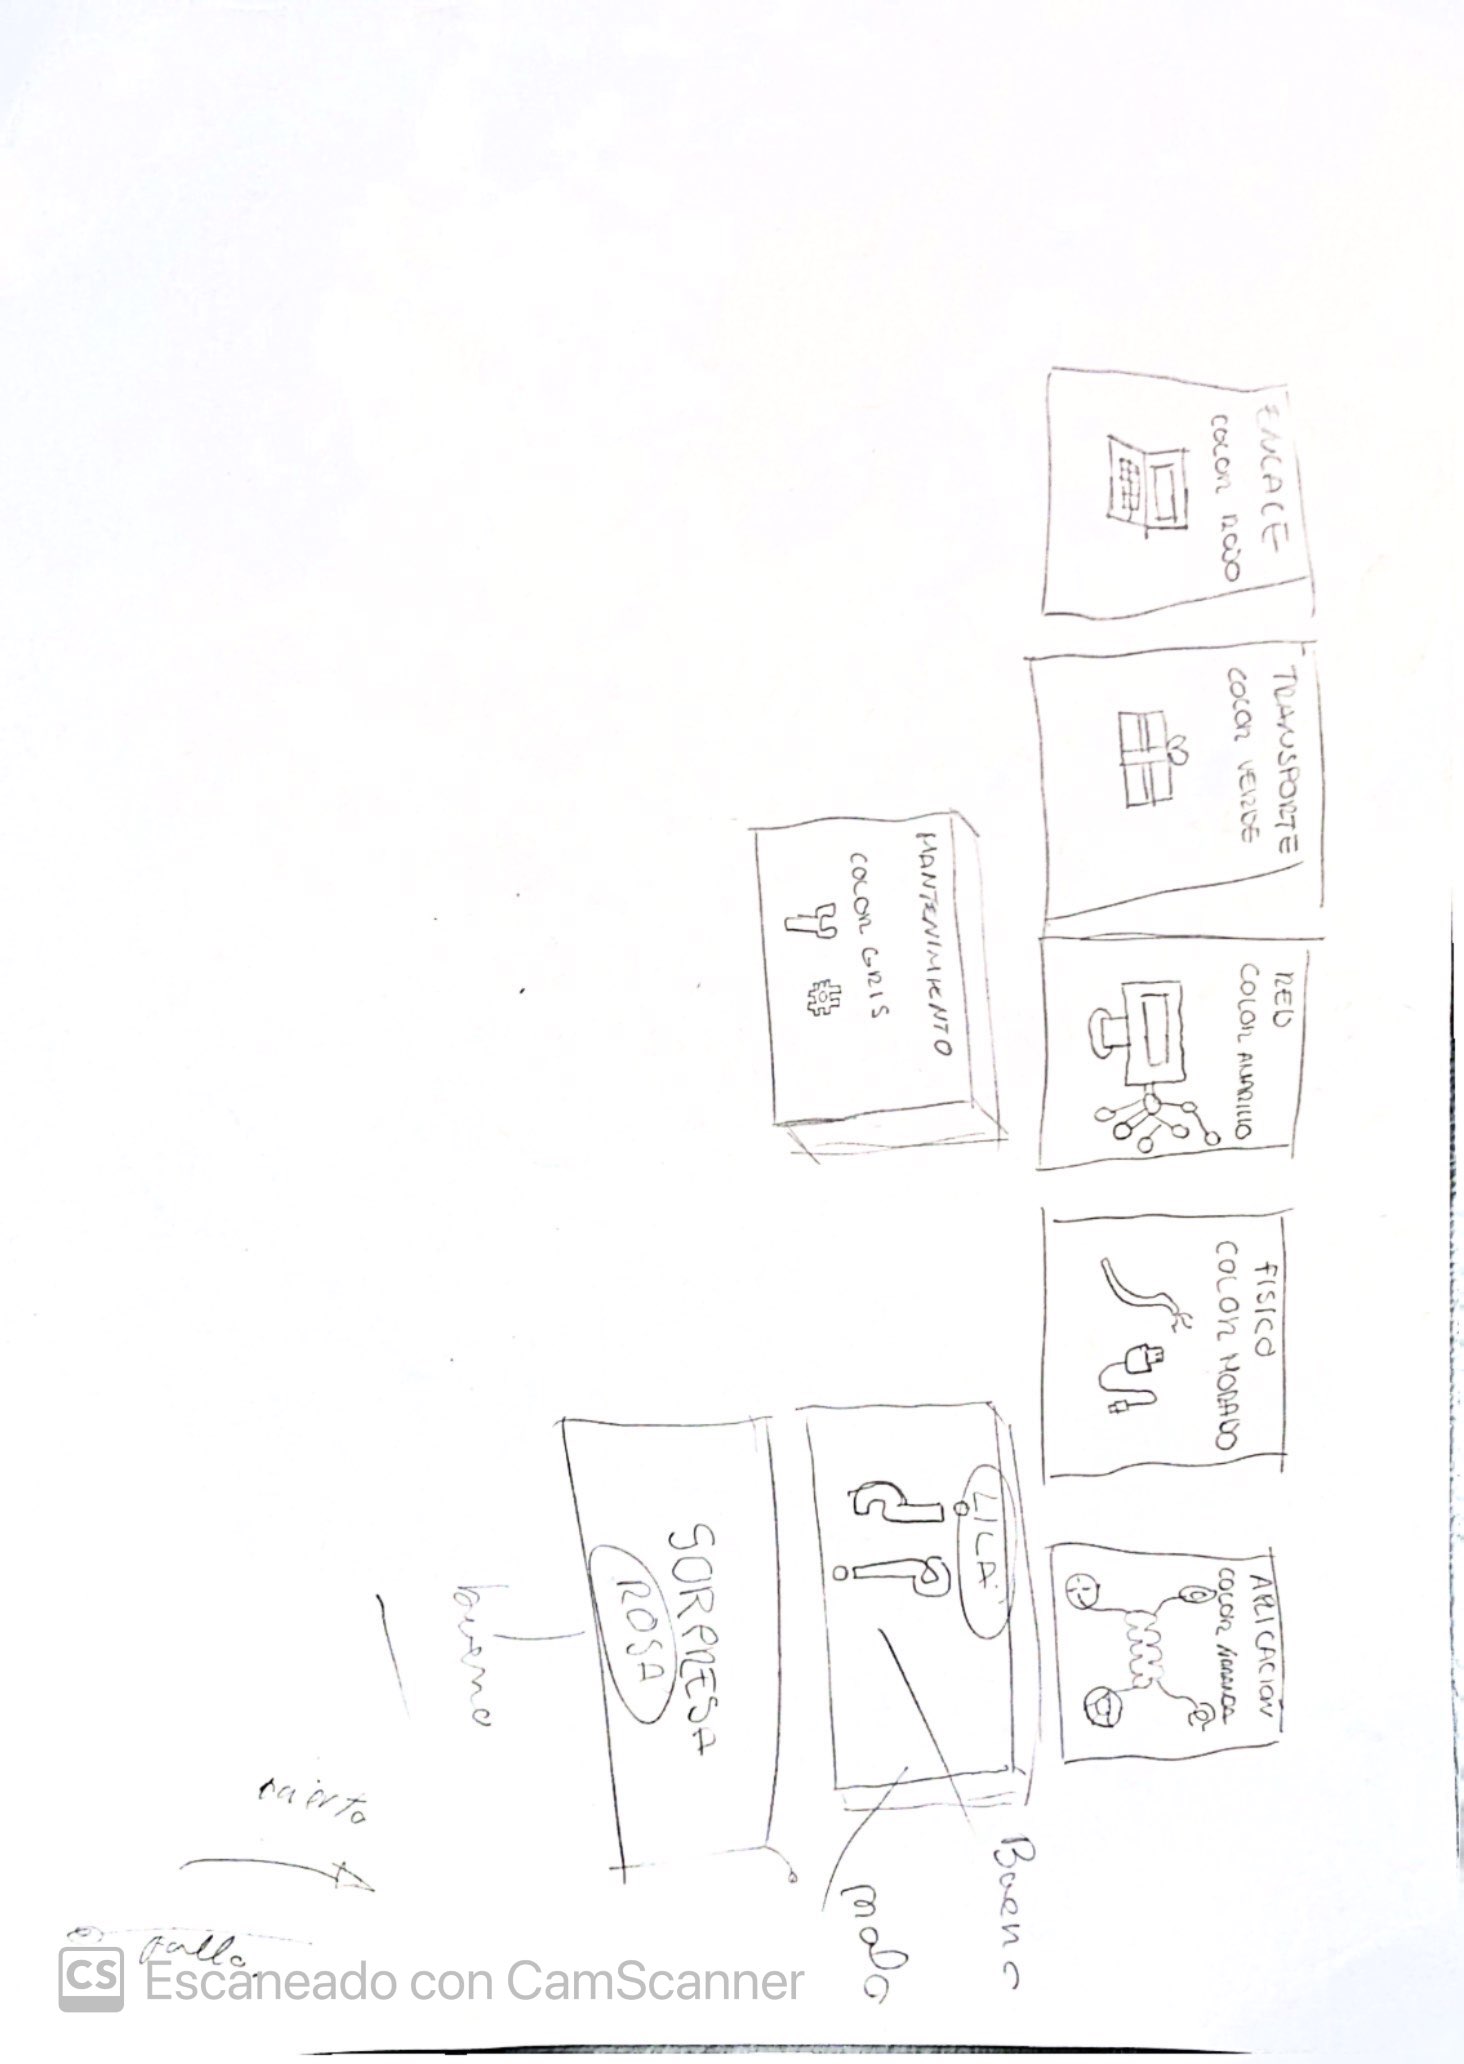 ENLACE
COLOR ROJO
TRANSPORTE
COLOR VERDE
RED
COLOR AMARILLO
FISICO
COLOR MORADO
APLICACIÓN
COLOR NARANJA
MANTENIMIENTO
COLOR GRIS
LILA
¿?
Bueno
malo
SORPRESA
ROSA
bueno
acierto
o fallo.
CS Escaneado con CamScanner